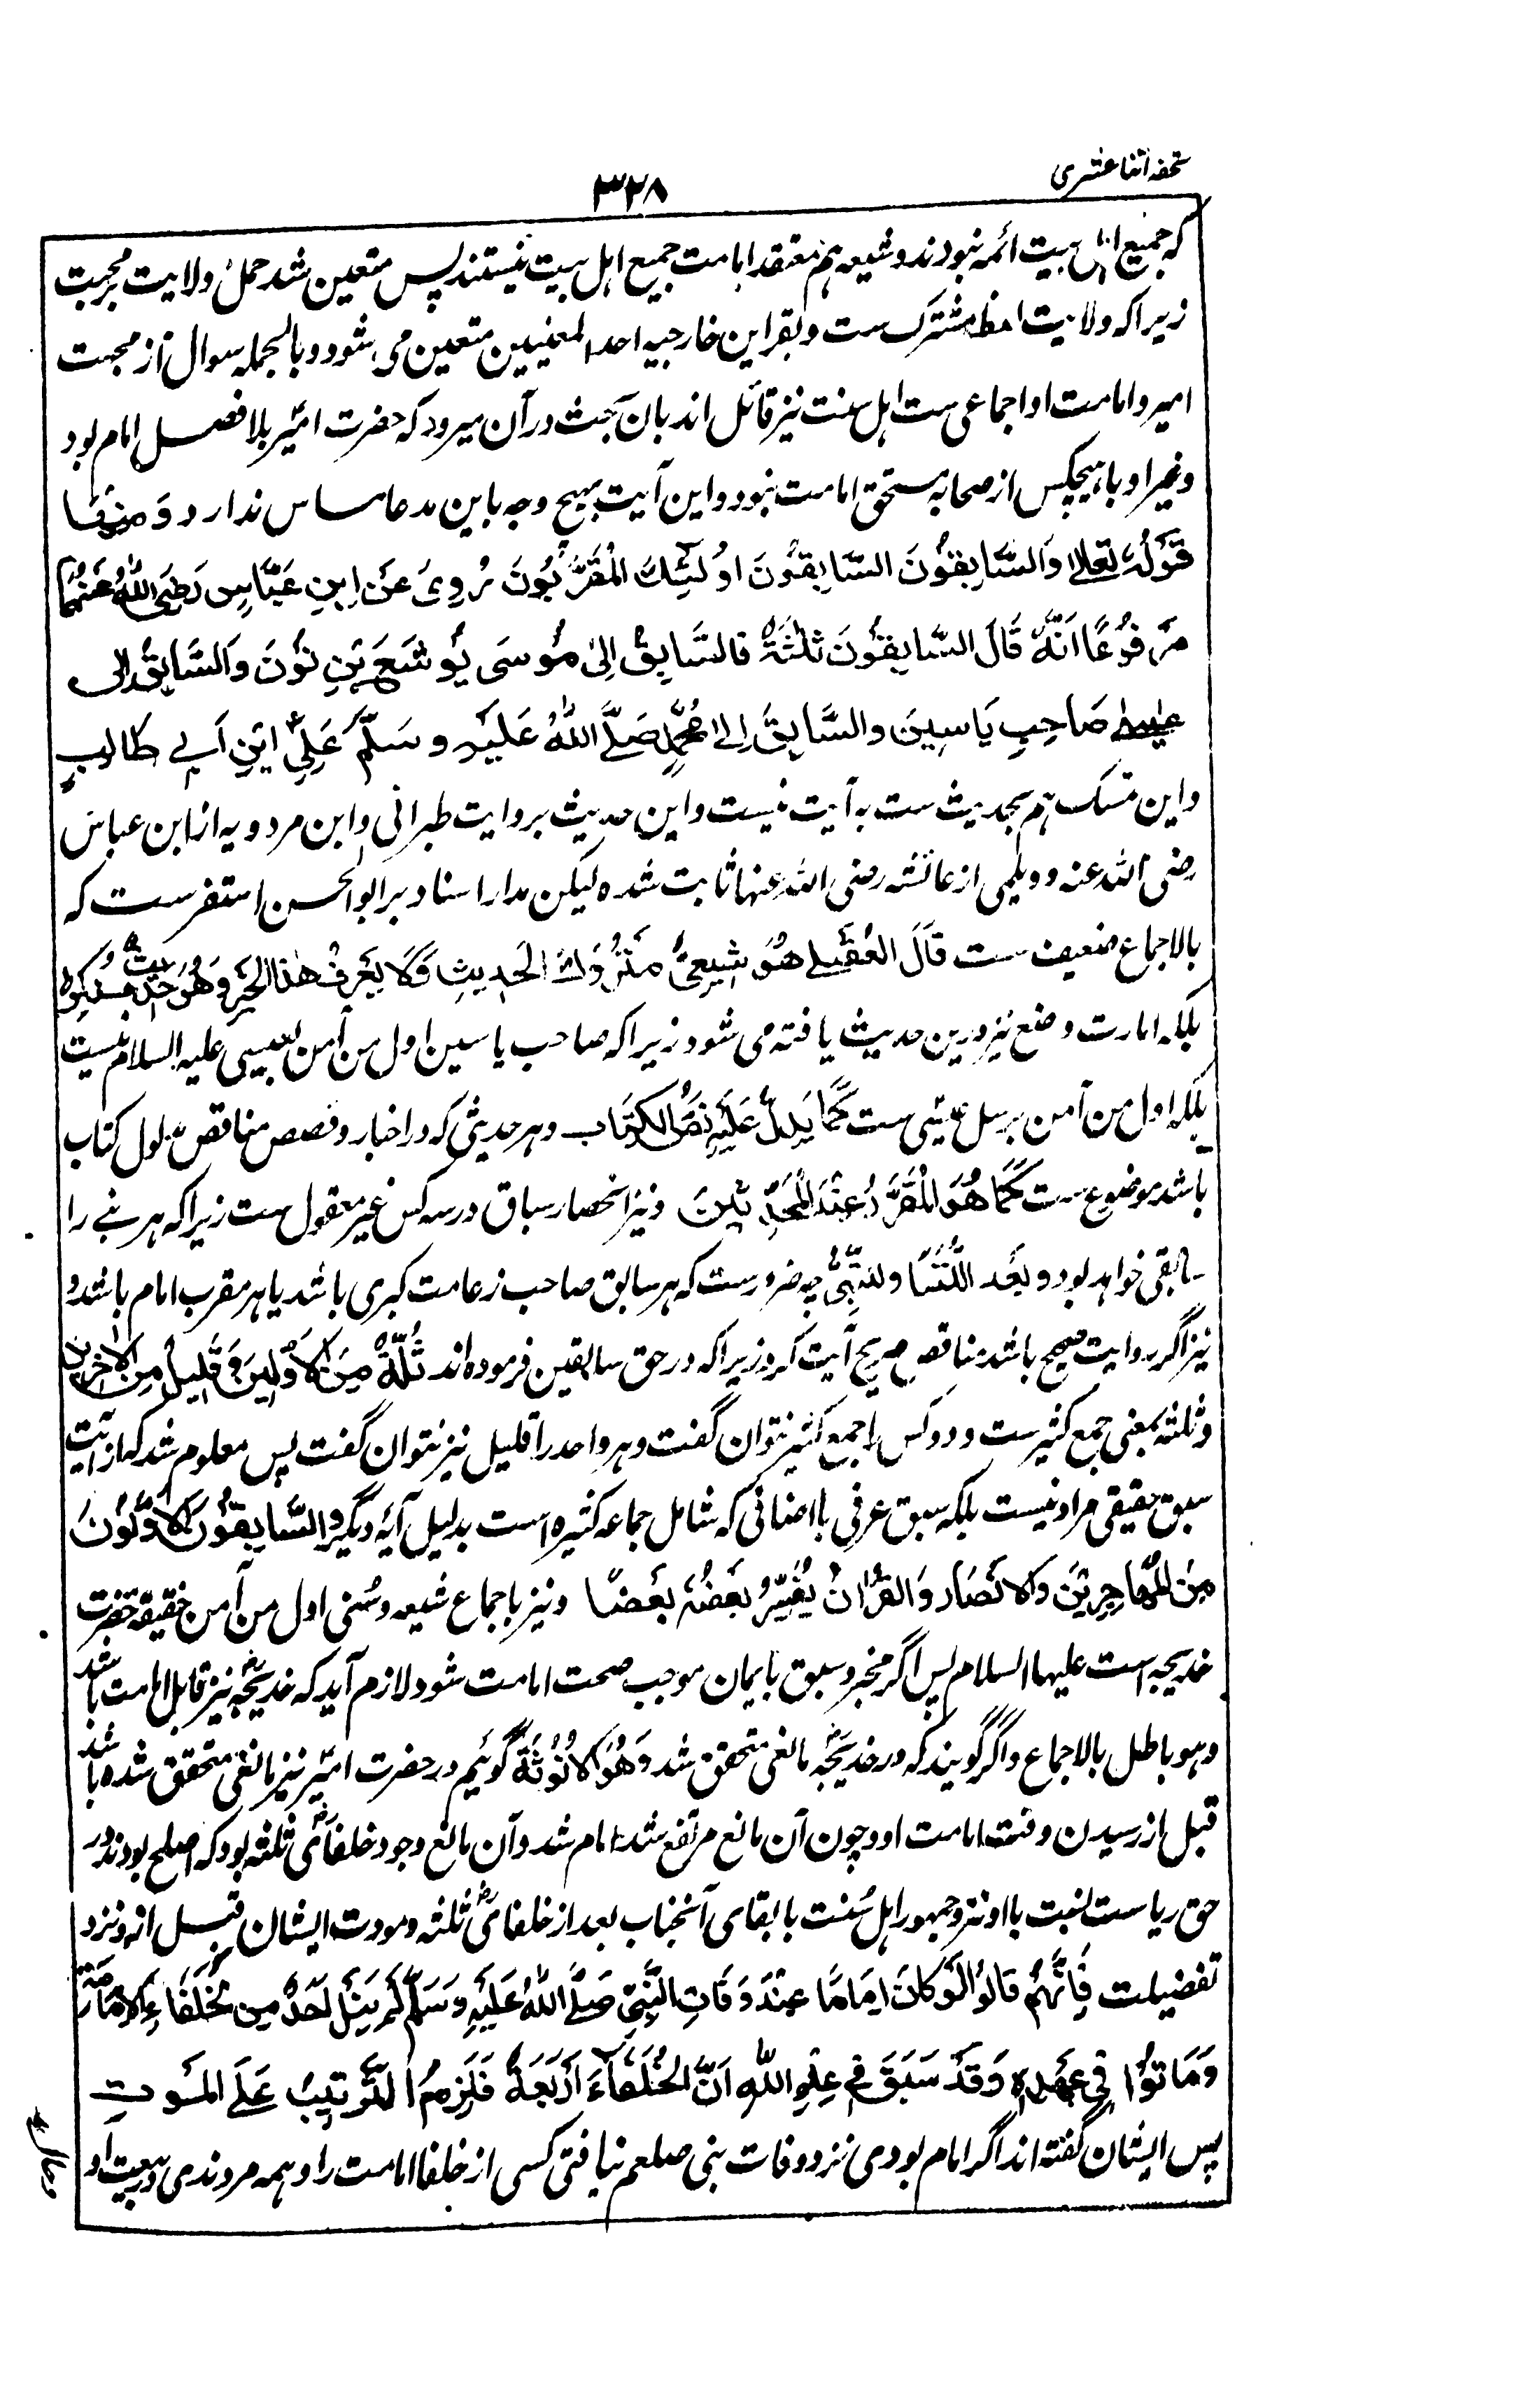 تحفه اثنا عشری
۳۲۸
که جمیع اهل بیت ائمه نبودند و شیعه هم معتقد امامت جمیع اهل بیت نیستند پس متعین شد حمل ولایت بر محبت
زیراکه ولایت لفظ مشترک ست و بقراین خارجیه احد المعنیین متعین می شود و بالجمله سوال از محبت
امیر و امامت او اجماعی ست اهل سنت نیز قائل اند بآن بحث در آن میرود که حضرت امیر بلا فصل امام بود
و غیر او با هیچکس از صحابه مستحق امامت نبود و این آیت بهیچ وجه باین مدعا مساس ندارد وَ مِنْهَا
قَوْلُهُ تعالٰی وَالسَّابِقُونَ السَّابِقُونَ اُولٰئِكَ الْمُقَرَّبُونَ رُوِیَ عَنِ ابنِ عَبَّاسٍ رَضِیَ اللهُ عَنْهُمَا
مَرْفُوعًا اَنَّهُ قَالَ السَّابِقُونَ ثَلٰثَةٌ فالسَّابِقُ اِلیٰ مُوسَی یُوشَعُ بْنُ نُوْنَ وَالسَّابِقُ اِلی
عیسٰی صَاحِبِ یَاسِینَ والسَّابِقُ اِلیٰ مُحَمَّدٍ صَلَّی اللهُ عَلَیْهِ وسَلَّمَ عَلِیُّ ابْنِ اَبِی طَالِبٍ
و این تمسک هم بحدیث ست به آیت نیست و این حدیث بروایت طبرانی و ابن مردویه از ابن عباس
رضی الله عنه و دیلمی از عائشه رضی الله عنها ثابت شده لیکن مدار اسناد بر ابو الحسن اشقر ست که
بالاجماع ضعیف ست قَالَ العُقَیلِی هُوَ شِیعِیٌّ مَتْرُوكُ الحَدِیثِ وَلَا یُعْرَفُ هٰذَا الخَبَرُ وَهُوَ حَدِیثٌ مُنْکَرٌ
بلکه امارت وضع نیز درین حدیث یافته می شود زیراکه صاحب یاسین اول من آمن بعیسی علیه السلام نیست
بلکه اول من آمن برسل عیسی ست کَمَا یَدُلُّ عَلَیْهِ نَصُّ الکِتَاب و هر حدیثی که در اخبار و قصص مناقض مدلول کتاب
باشد موضوع ست کَمَا هُوَ المُقَرَّرُ عِنْدَ المُحَدِّثِینَ و نیز انحصار سباق در سه کس غیر معقول ست زیراکه هر نبی را
سابقی خواهد بود و بَعْدَ اللُّتَیَّا والَّتِی چه ضرورست که هر سابق صاحب زعامت کبری باشد یا هر مقرب امام باشد و
نیز اگر روایت صحیح باشد مناقض صریح آیت گردد زیراکه در حق سابقین فرموده اند ثُلَّةٌ مِنَ الاَوَّلِینَ وَ قَلِیلٌ مِنَ الاٰخِرِینَ
و ثله بمعنی جمع کثیر ست و دو کس را جمع کثیر نتوان گفت و هر واحد را قلیل نیز نتوان گفت پس معلوم شد که از آیت
سبق حقیقی مراد نیست بلکه سبق عرفی یا اضافی که شامل جماعه کثیره است بدلیل آیه دیگر والسَّابِقُونَ الاَوَّلُونَ
مِنَ المُهَاجِرِینَ والاَنْصَار وَالقُرْاٰنُ یُفَسِّرُ بَعْضُهُ بَعْضًا و نیز باجماع شیعه و سُنی اول من آمن حقیقة حضرت
خدیجه است علیها السلام پس اگر مجرد سبق بایمان موجب صحت امامت شود لازم آید که خدیجه نیز قابل امامت باشد
وهو باطل بالاجماع و اگر گویند که در خدیجه مانعی متحقق شد وَهُوَ الاُنُوثَةُ گوئیم در حضرت امیر نیز مانعی متحقق شده باشد
قبل از رسیدن وقت امامت او و چون آن مانع مرتفع شد امام شد و آن مانع وجود خلفای ثلثه بود که اصلح بودند در
حق ریاست نسبت باو نزد جمهور اهل سُنت یا بقای آنجناب بعد از خلفای ثلثه و موت ایشان قبل از و نزد
تفضیلیت فَاِنَّهُمْ قَالُوا لَو کَانَ اِمَامًا عِنْدَ وَفَاتِ النَّبِیِّ صَلَّی اللهُ عَلَیْهِ وَسَلَّمَ لَمْ یَنَلْ اَحَدٌ مِنَ الخُلَفَاءِ الاِمَامَةَ
وَمَاتُوا فِی عَهْدِهِ وَقَدْ سَبَقَ فِی عِلْمِ اللهِ اَنَّ الخُلَفَاءَ اَرْبَعَةٌ فَلَزِمَ التَّرْتِیبُ عَلَی المَوتِ
پس ایشان گفته اند اگر امام بودی نزد وفات نبی صلعم نیافتی کسی از خلفا امامت را و همه مردندی در بیعت او